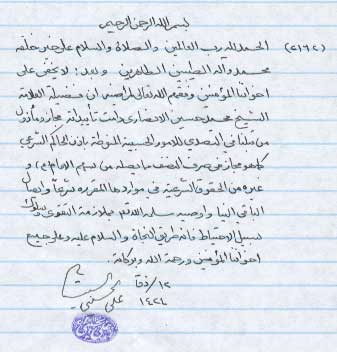 بسم الله الرحمن الرحيم
(٢١٦٢) الحمد لله رب العالمين والصلاة والسلام على خير خلقه
محمد وآله الطيبين الطاهرين وبعد: لا يخفى على
اخواننا المؤمنين وفقهم الله تعالى لمراضيه ان فضيلة العلامة
الشيخ محمد حسين الانصاري دامت تأييداته مجاز ومأذون
من قبلنا في التصدي للامور الحسبية المنوطة باذن الحاكم الشرعي
كما هو مجاز في صرف النصف مما يصله من سهم الامام (ع) و
غيره من الحقوق الشرعية في مواردها المقررة شرعاً وايصال
الباقي الينا واوصيه سلمه الله تعالى بملازمة التقوى وسلوك
سبيل الاحتياط فانه طريق النجاة والسلام عليه وعلى جميع
اخواننا المؤمنين ورحمة الله وبركاته
١٢/ ذق
١٤٢٤
علي الحسيني